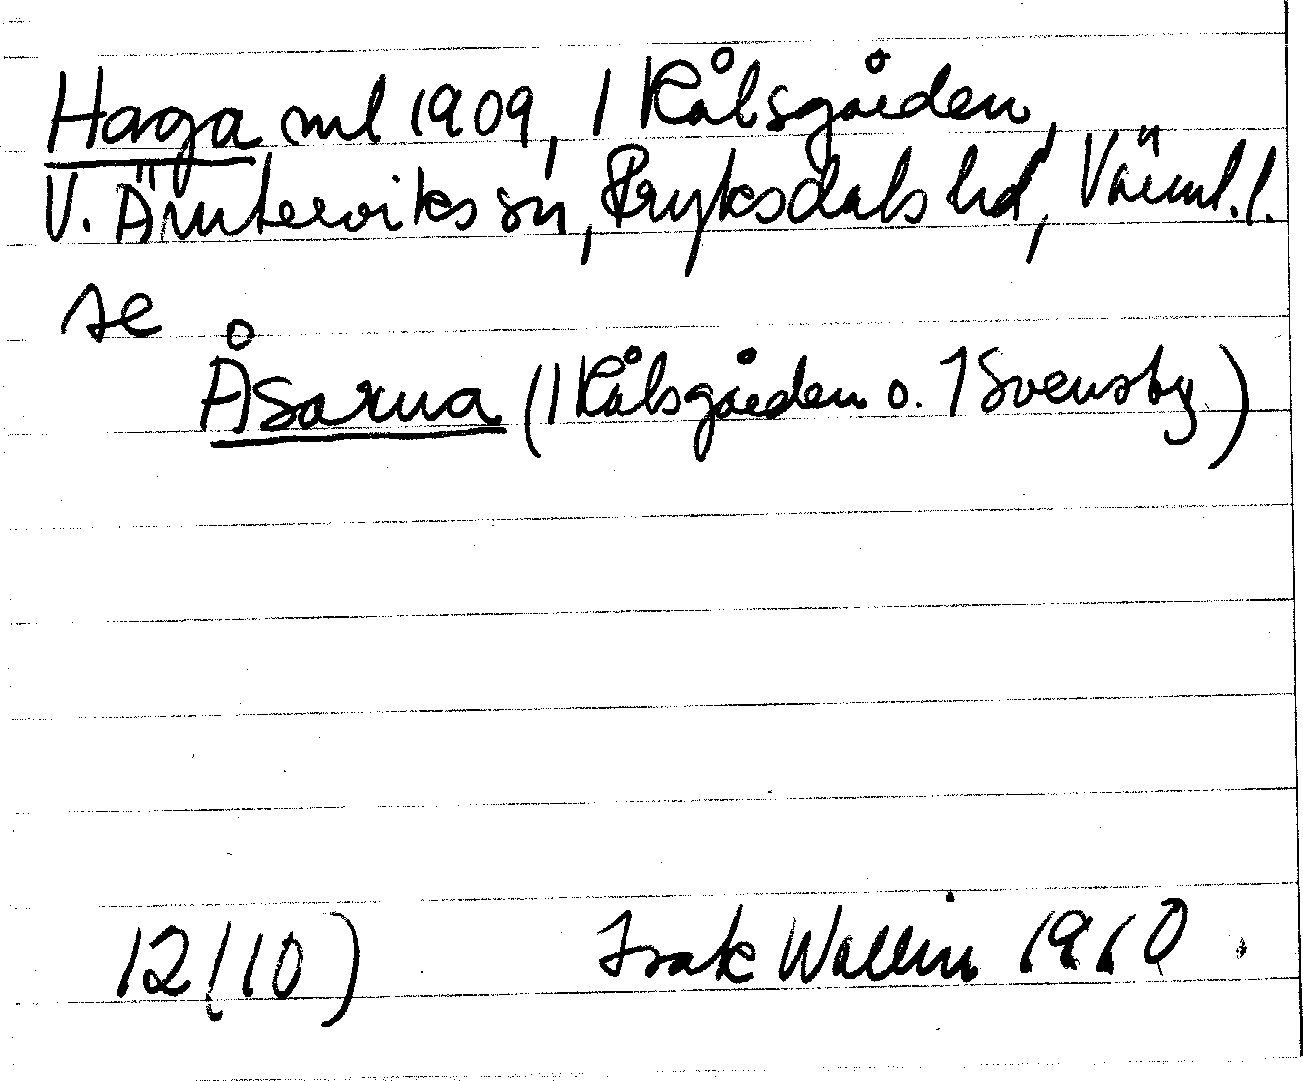 Haga ml 1909, 1 Rålsgården,
V. Ämterviks sn, Fryksdals hd, Värml. l.
se
Åsarna (1 Rålsgården o. 1 Svensby)
12(10) Isak Wallin 1910